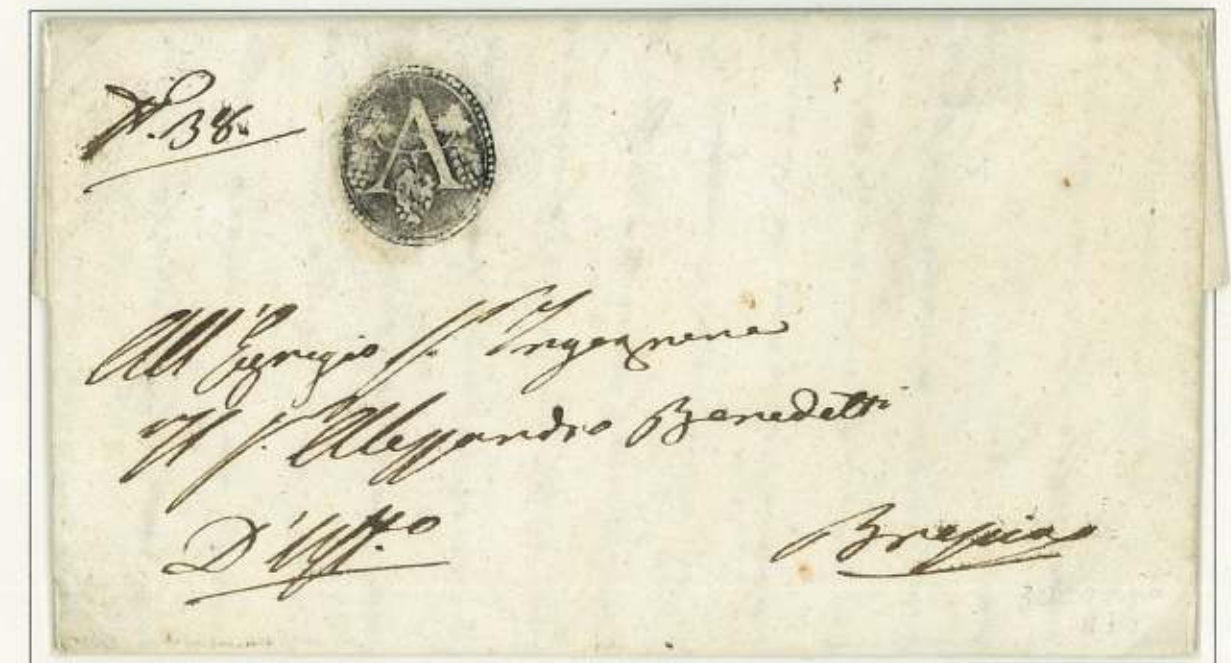 N. 38.
A
All'Egregio S. Ingegnere
Il S. Alessandro Benedetti
D'Uff.o
Brescia